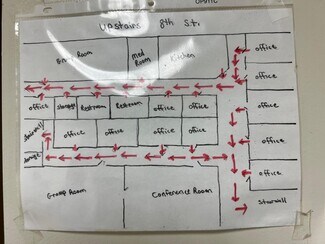 Upstairs 8th St.
Group Room
Med Room
Kitchen
office
office
office
office
office
office
Stairwell
office
storage
Restroom
Restroom
office
office
office
office
office
office
Stairwell
storage
Group Room
Conference Room